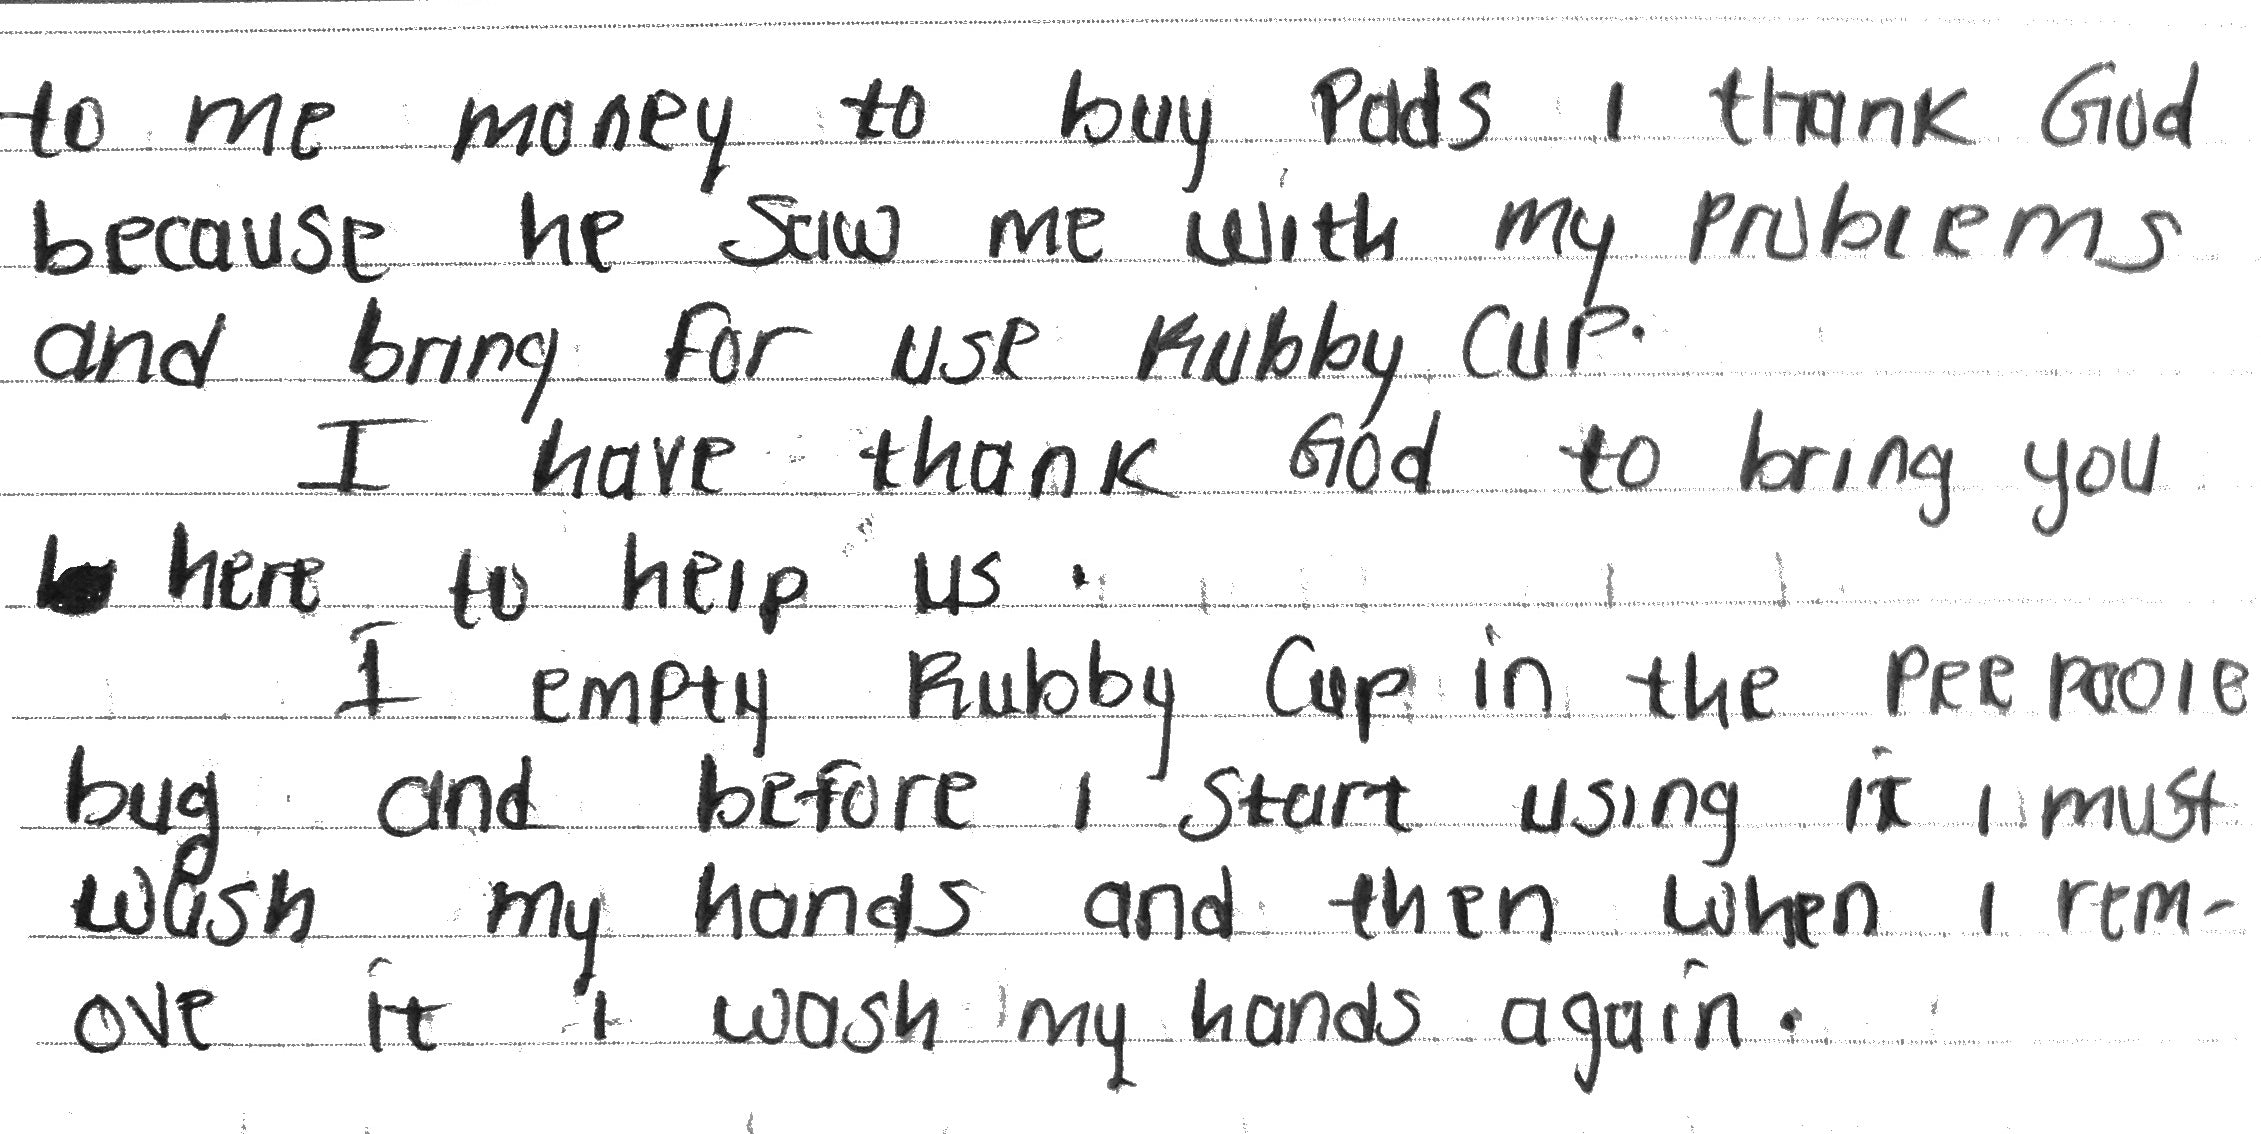 to me money to buy Pads I thank God
because he saw me with my problems
and bring for use Rubby Cup.
I have thank God to bring you
here to help us.
I empty Rubby Cup in the peepoole
bug and before I start using it I must
wash my hands and then when I rem-
ove it I wash my hands again.